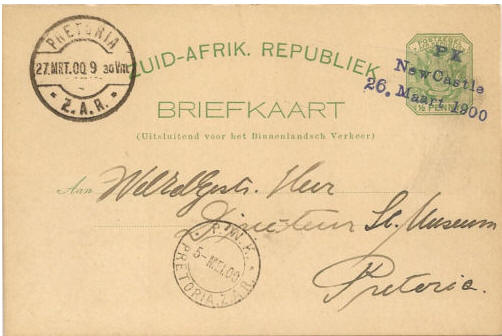 PRETORIA
27.MRT.00 9
Z.A.R.
ZUID-AFRIK. REPUBLIEK
POSTZEGEL
½ PENNY
P K
NewCastle
26. Maart 1900
BRIEFKAART
(Uitsluitend voor het Binnenlandsch Verkeer)
Aan WelEdGestr. Heer
Directeur St. Museum
Pretoria.
P.W.K.
5-MEI.00
PRETORIA.Z.A.R.